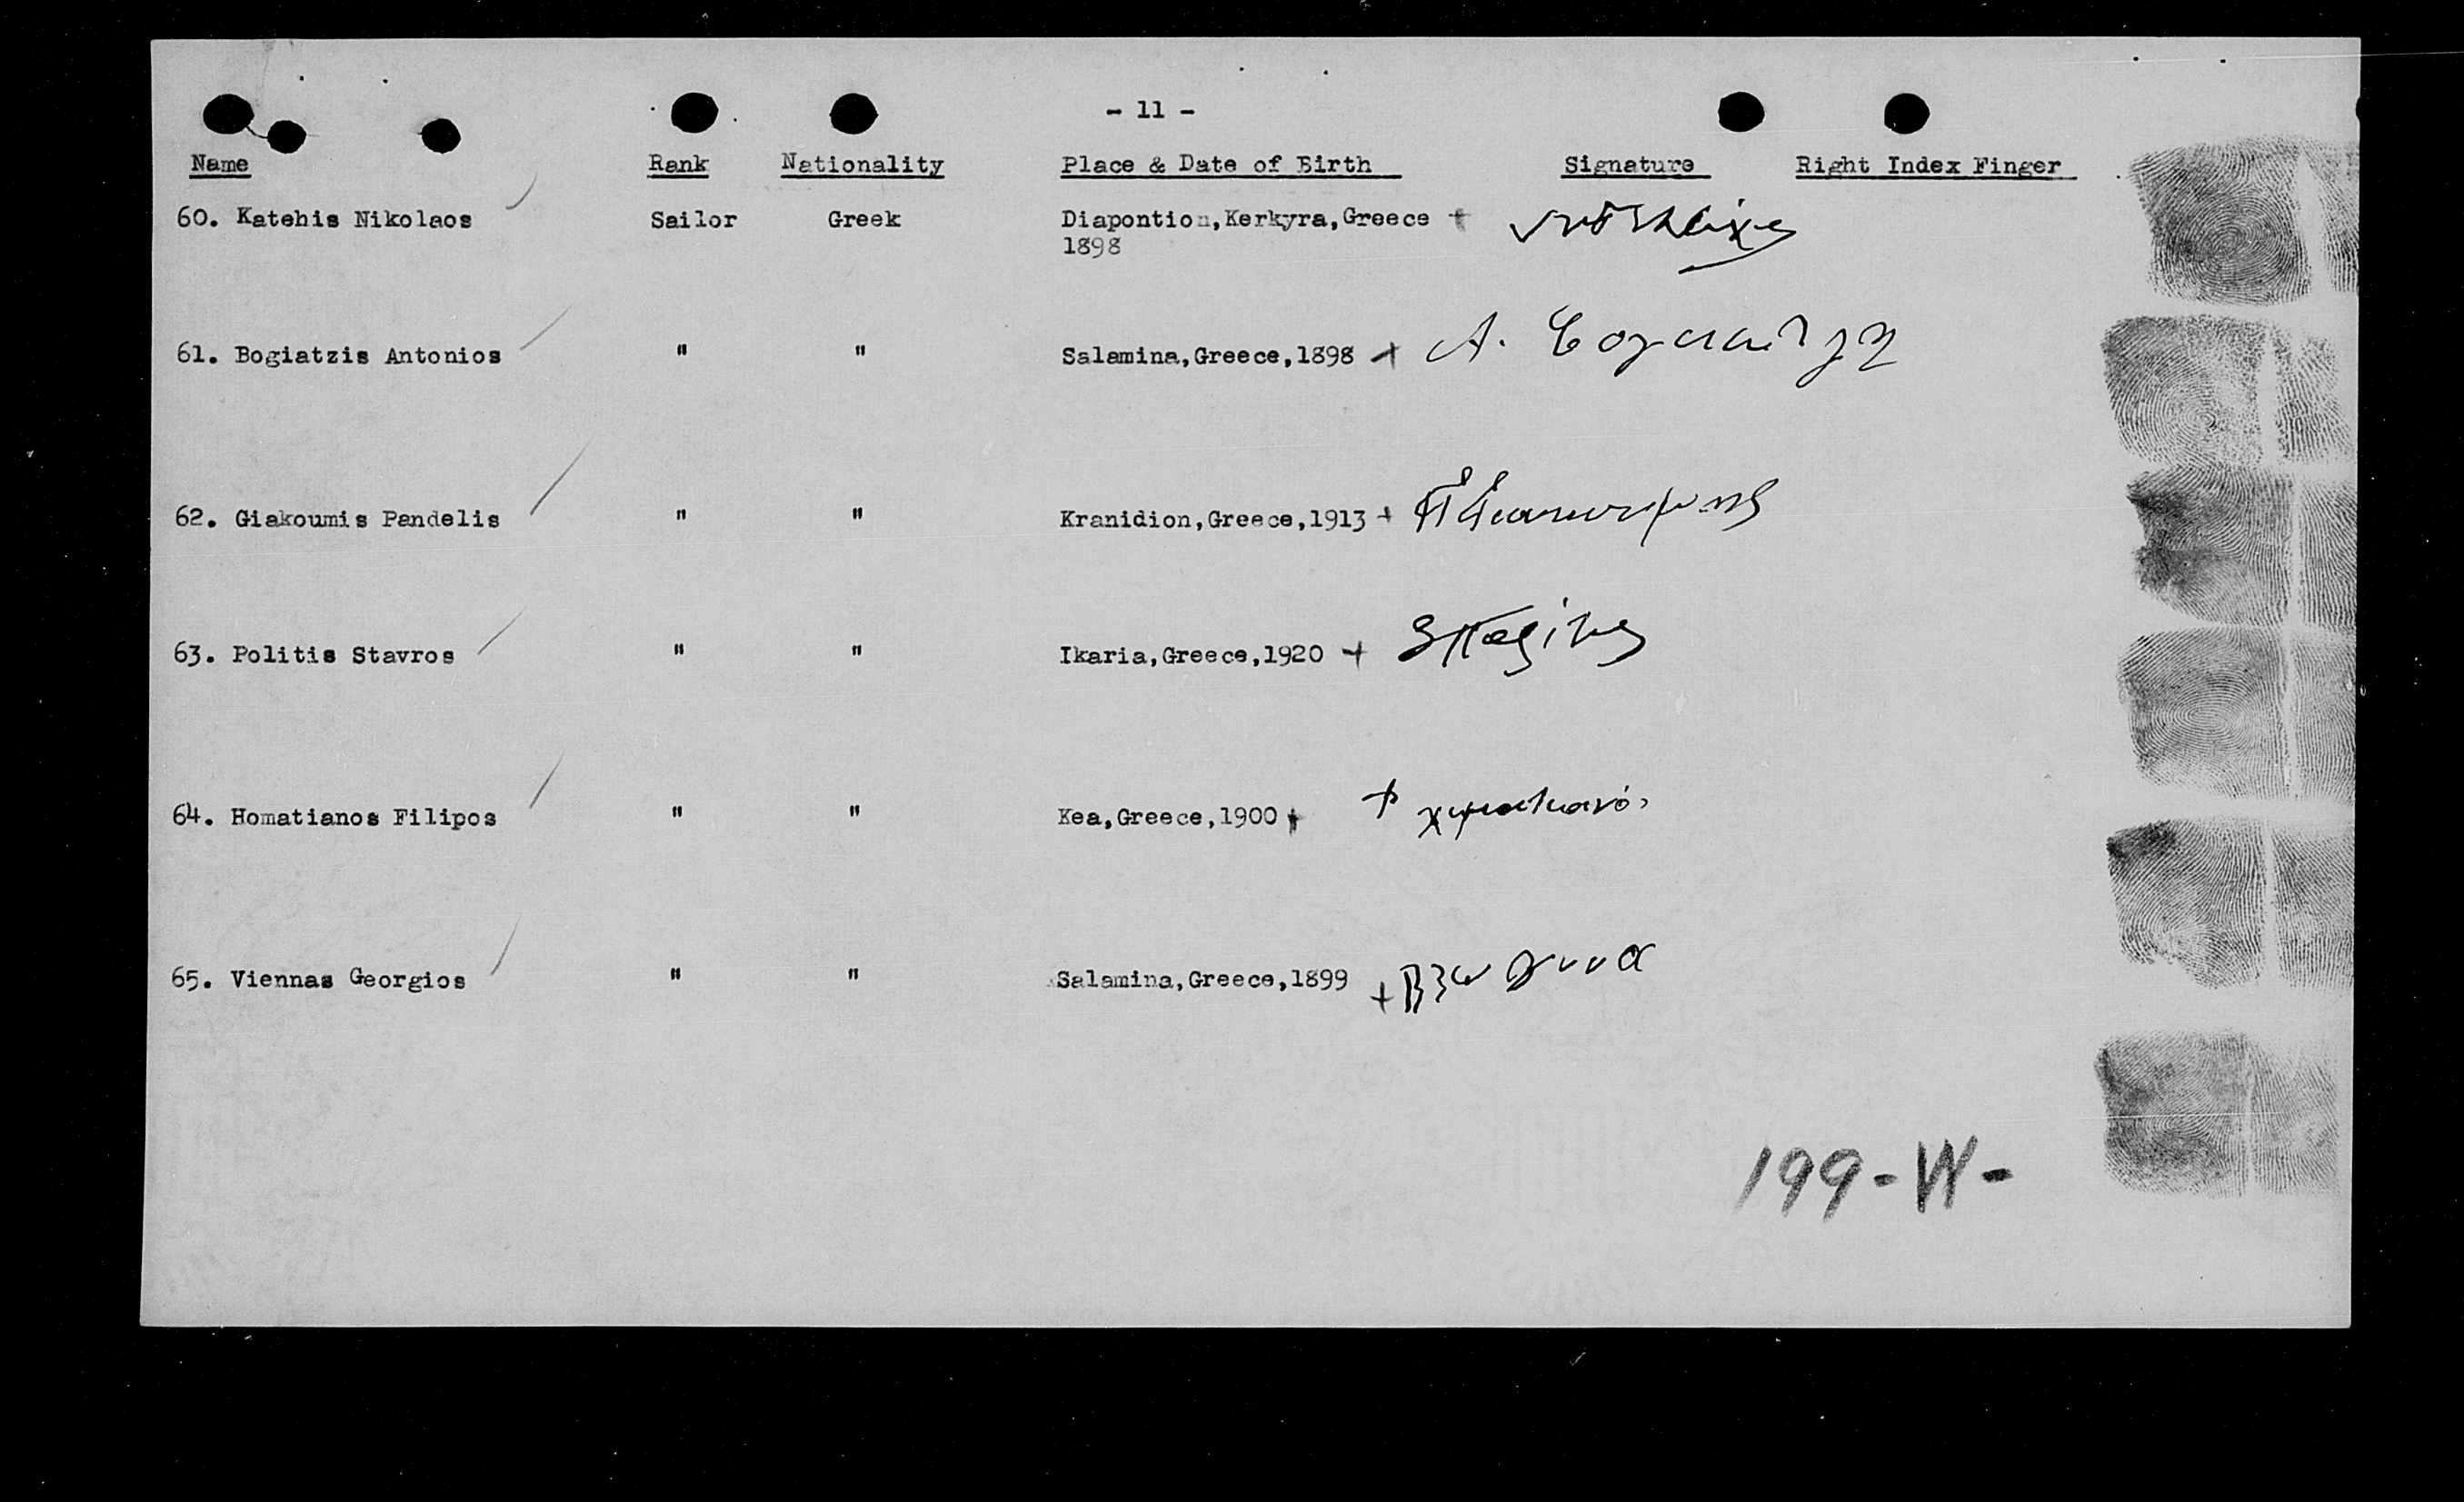 - 11 -
Name Rank Nationality Place & Date of Birth Signature Right Index Finger
60. Katehis Nikolaos Sailor Greek Diapontion, Kerkyra, Greece +
1898
61. Bogiatzis Antonios " " Salamina, Greece, 1898 + Α.
62. Giakoumis Pandelis " " Kranidion, Greece, 1913 + Π Γιακουμης
63. Politis Stavros " " Ikaria, Greece, 1920 +
64. Homatianos Filipos " " Kea, Greece, 1900 + χωματιανός
65. Viennas Georgios " " Salamina, Greece, 1899 +
199-W-